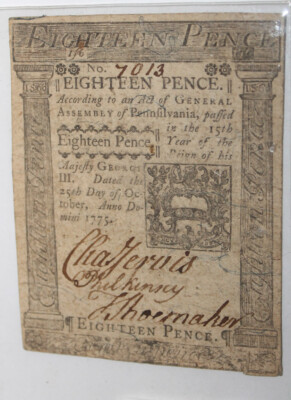 EIGHTEEN PENCE
1/6
No. 7013
EIGHTEEN PENCE.
According to an Act of GENERAL
ASSEMBLY of Pennsylvania, passed
Eighteen Pence.
in the 15th
Year of the
Reign of his
Majesty GEORGE
III. Dated the
25th Day of Oc-
tober, Anno Do-
mini 1775.
Chas Jervis
Phil Kinsey
J Shoemaker
EIGHTEEN PENCE.